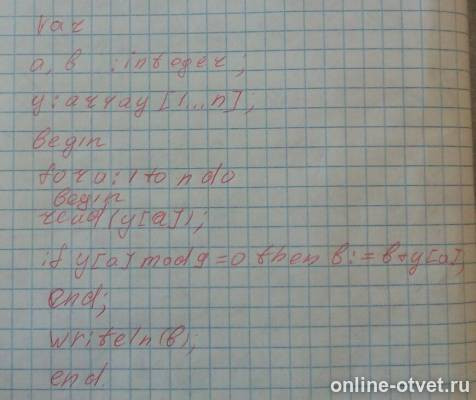 var
a, b : integer;
y : array [1..n];
begin
for a: 1 to n do
begin
read (y[a]);
if y[a] mod 9 = 0 then b := b+y[a];
end;
writeln(b);
end.
online-otvet.ru